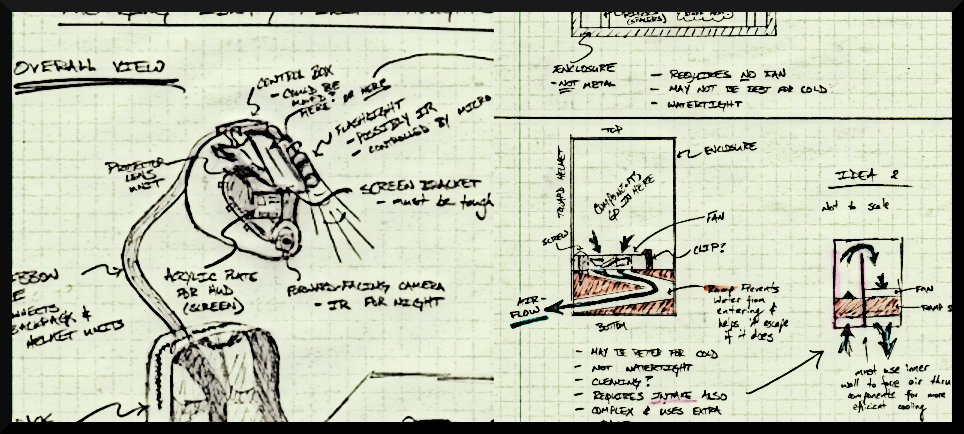 OVERALL VIEW
CONTROL BOX
- COULD BE
HERE? OR HERE
FLASHLIGHT
- POSSIBLY IR
- CONTROLLED BY MICRO
PROJECTOR
LENS
UNIT
SCREEN BRACKET
- MUST BE tough
ACRYLIC PLATE
FOR HUD
(SCREEN)
FORWARD-FACING CAMERA
- IR FOR NIGHT
BACKPACK &
HELMET UNITS
(SPACERS)
ENCLOSURE
- NOT METAL
- REQUIRES NO FAN
- MAY NOT BE BEST FOR COLD
- WATERTIGHT
TOP
ENCLOSURE
TOWARD HELMET
COMPONENTS
GO IN HERE
FAN
SCREW
CLIP?
AIR-
FLOW
Ramp Prevents
Water from
entering &
helps it escape
if it does
BOTTOM
- MAY BE BETER FOR COLD
- NOT WATERTIGHT
- CLEANING?
- REQUIRES INTAKE ALSO
- COMPLEX & USES EXTRA
IDEA 2
Not to scale
FAN
RAMP S
must use inner
wall to force air thru
components for more
efficient cooling